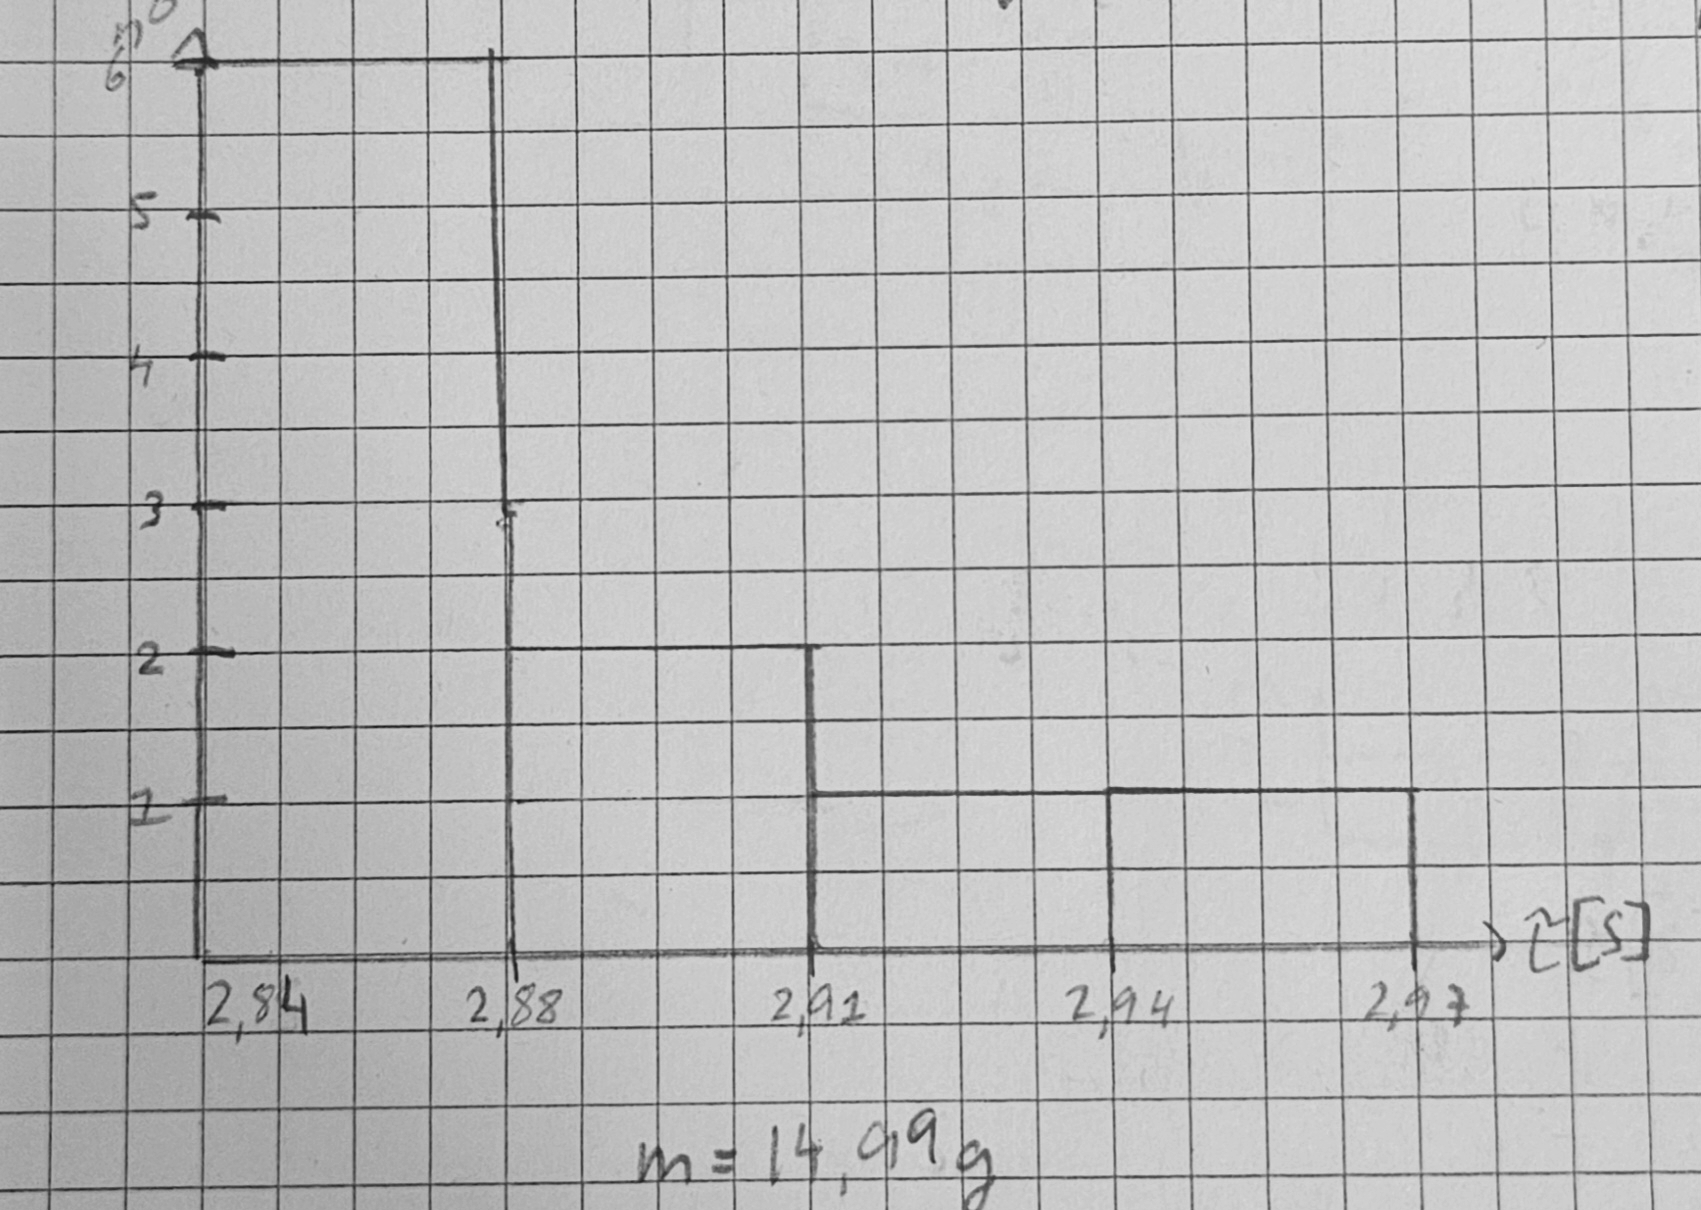 6
5
4
3
2
1
τ[s]
2,84 2,88 2,91 2,94 2,97
m = 14,99 g